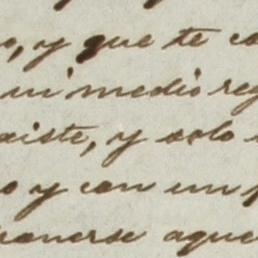 o, y que te co
mi medio reg
aiste, y solo
o y con un p
ponerse aque